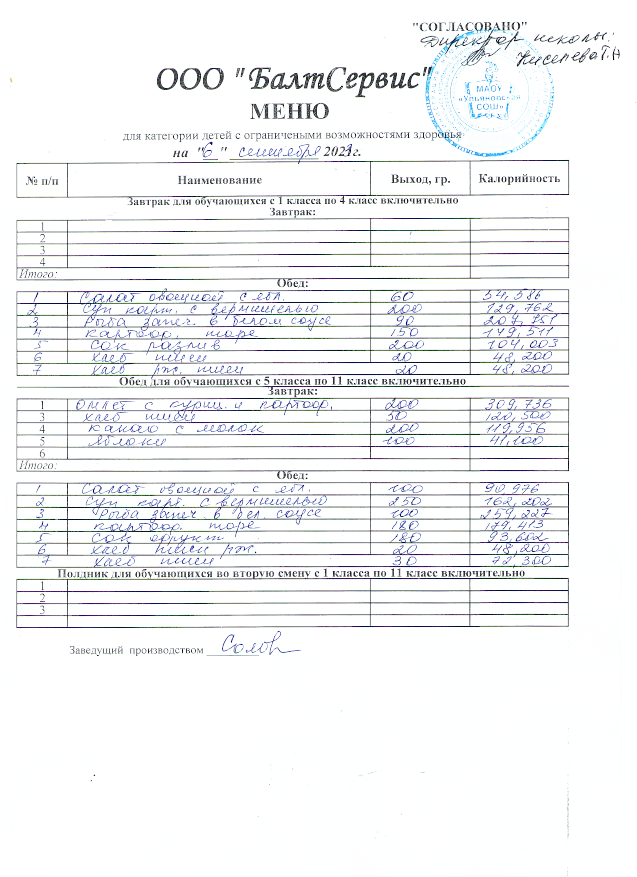 "СОГЛАСОВАНО"
Директор школы:
Киселева Т.А
ООО "БалтСервис"
МАОУ
«Ульяновская
СОШ»
МЕНЮ
для категории детей с ограничеными возможностями здоровья
на "6" сентября 2021г.
№ п/п Наименование Выход, гр. Калорийность
Завтрак для обучающихся с 1 класса по 4 класс включительно
Завтрак:
1
2
3
4
Итого:
Обед:
1 Салат овощной с ябл. 60 54,586
2 Суп карт. с вермишелью 200 129,762
3 Рыба запеч. в белом соусе 90 207,751
4 картофор. пюре 150 149,511
5 Сок разлив 200 104,003
6 хлеб пшен 20 48,200
7 хлеб рж. пшен 20 48,200
Обед для обучающихся с 5 класса по 11 класс включительно
Завтрак:
1 Омлет с куриц. и картофор. 200 309,736
3 хлеб пшен 50 120,500
4 какао с молок 200 119,956
5 яблоки 100 41,100
6
Итого:
Обед:
1 Салат овощной с ябл. 100 90,976
2 Суп карт. с вермишелью 250 162,202
3 Рыба запеч. в бел. соусе 100 259,227
4 картофор. пюре 180 179,413
5 Сок фрукт 180 93,602
6 хлеб пшен рж. 20 48,200
7 хлеб пшен 30 72,300
Полдник для обучающихся во вторую смену с 1 класса по 11 класс включительно
1
2
3
Заведущий производством